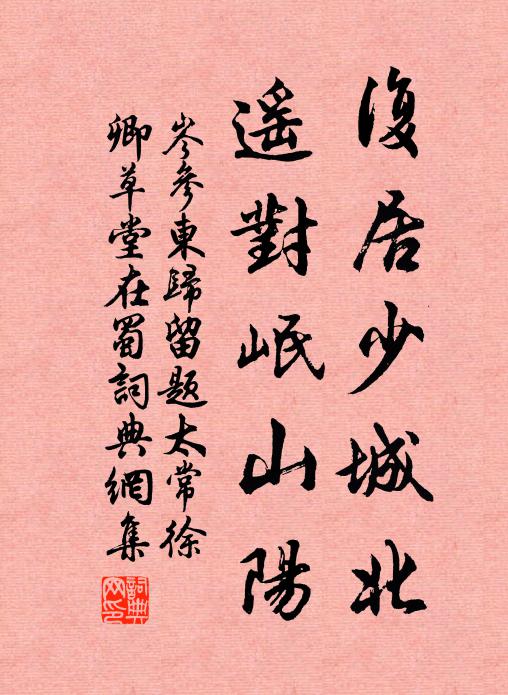 復居少城北
遥對岷山陽
岑參東歸留題太常徐
卿草堂在蜀詞典網集
詞典网印